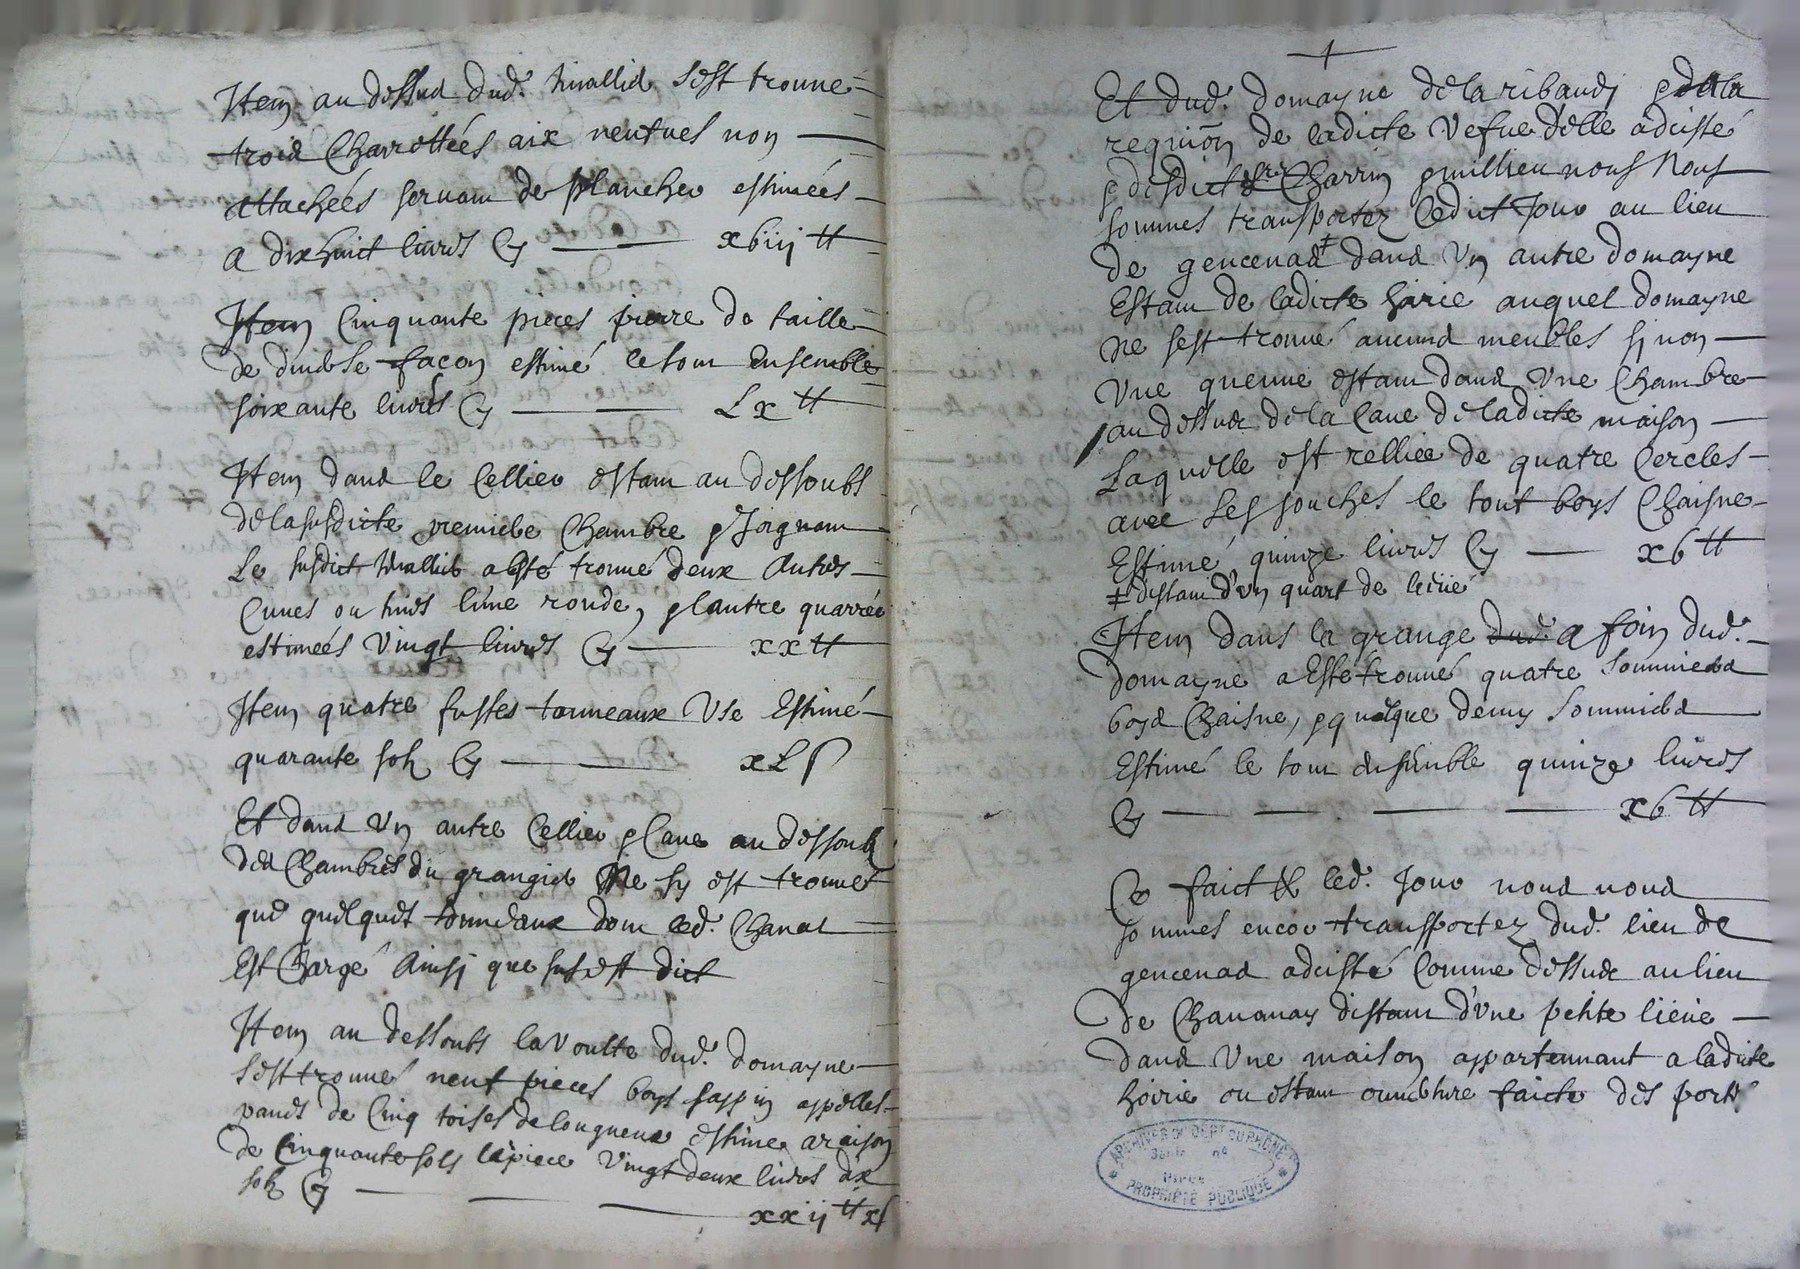 Item au dessus dud. tinallier s'est trouvé
trois charrettées aix neufves non
attachées servant de plancher estimées
a dixhuict livres cy xbiij ₶
Item cinquante pieces pierre de taille
de diverse façon estimé le tout ensemble
soixante livres cy Lx ₶
Item dans le cellier estant au dessoubs
de la susdicte premiere chambre & joignant
le susdict tinallier a esté trouvé deux autres
cuves ou tines l'une ronde, & l'autre quarrée
estimées vingt livres cy xx ₶
Item quatre fustes tonneaux usé estimé
quarante solz cy xL s
Et dans un autre cellier & cave au dessoubz
des chambres du grangier ne s'y est trouvé
que quelques tonneaux dont led. Chanal
est chargé ainsi que sus est dict
Item au dessoubs la voulte dud. domayne
s'est trouvé neuf pieces boys sappin appellés
pands de cinq toises de longueur estimé a raison
de cinquante sols la piece vingt deux livres dix
solz cy
xxij ₶ x s
Et dud. domayne de la ribaudy & de la
requi͠on de ladicte vefve d'elle adcisté
& desdicts srs Charrin & millieu nous nous
sommes transportez cedict jour au lieu
de gencenas ‡ dans un autre domayne
estant de ladicte hoirie auquel domayne
ne s'est trouvé aucuns meubles sinon
une quenne estant dans une chambre
au dessus de la cave de ladicte maison
laquelle est relliée de quatre cercles
avec ses souches le tout boys chaisne
estimé quinze livres cy xb ₶
‡ distant d'un quart de lieüe
Item dans la grange dud. a foin dud.
domayne a esté trouvé quatre sommiers
boys chaisne, & quelque demy sommiers
estimé le tout ensemble quinze livres
cy xb ₶
Ce faict & led. jour nous nous
sommes encor transportez dud. lieu de
gencenas adcisté comme dessus au lieu
de Chavanay distant d'une petite lieüe
dans une maison appartennant a ladicte
hoirie ou estant ouverture faicte des portes
ARCHIVES DU DEPT DU RHÔNE
Série no
Pièce
PROPRIÉTÉ PUBLIQUE